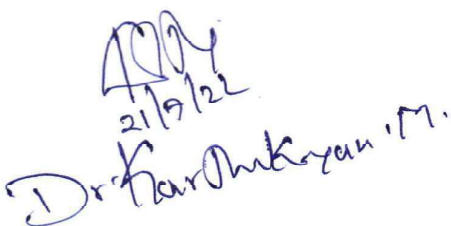 21/9/22
Dr. Karthikeyan .M.